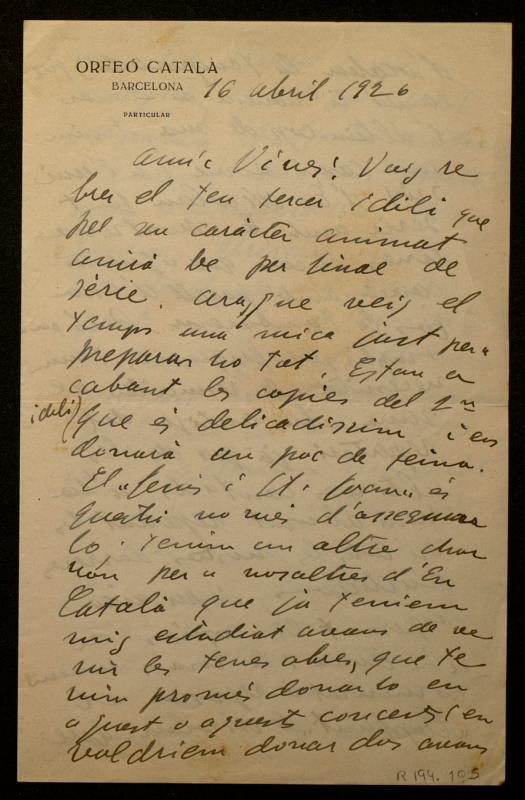 ORFEÓ CATALÀ
BARCELONA
PARTICULAR
16 abril 1926
Amic Vives: Vaig re
bre el teu tercer idili que
pel seu caràcter animat
anirà be per final de
serie. Ara que veig el
temps una mica just per a
preparar ho tot. Estan a
cabant les copies del 2n
idili) que és delicadissim i ens
donarà un poc de feina.
El "Jesús i St. Joan" és
questió només d'assegurar
lo. Tenim un altre
per a nosaltres d'En
Català que ja teniem
mig estudiat avans de ve
nir les teves obres, que te
nim promés donarlo en
aquest o aquests concerts (en
voldriem donar dos avans
R 194. 105